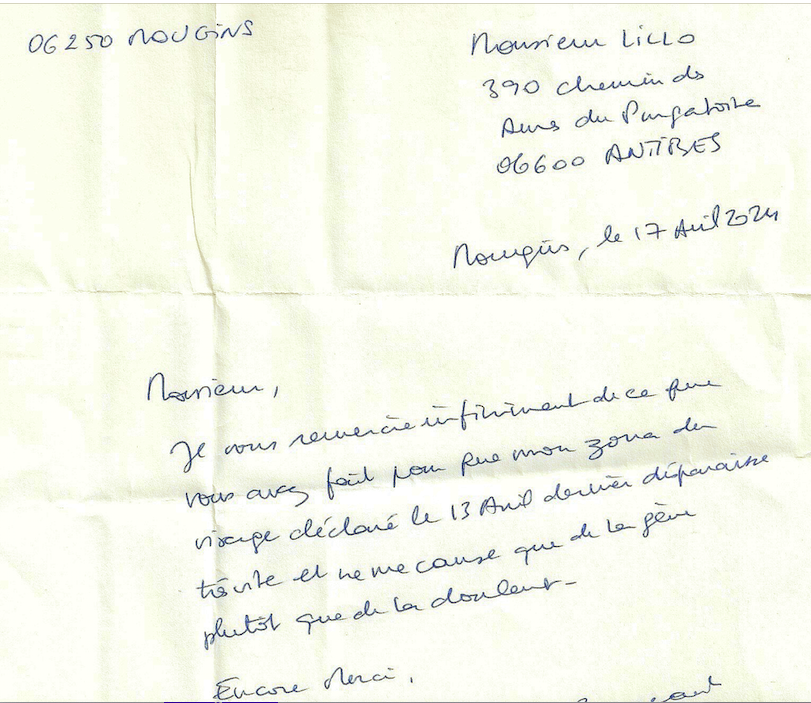 06250 MOUGINS
Monsieur LILLO
390 chemin des
Ames du Purgatoire
06600 ANTIBES
Mougins, le 17 Avril 2024
Monsieur,
Je vous remercie infiniment de ce que
vous avez fait pour que mon zona du
visage déclaré le 13 Avril dernier disparaisse
très vite et ne me cause que de la gêne
plutôt que de la douleur -
Encore Merci,